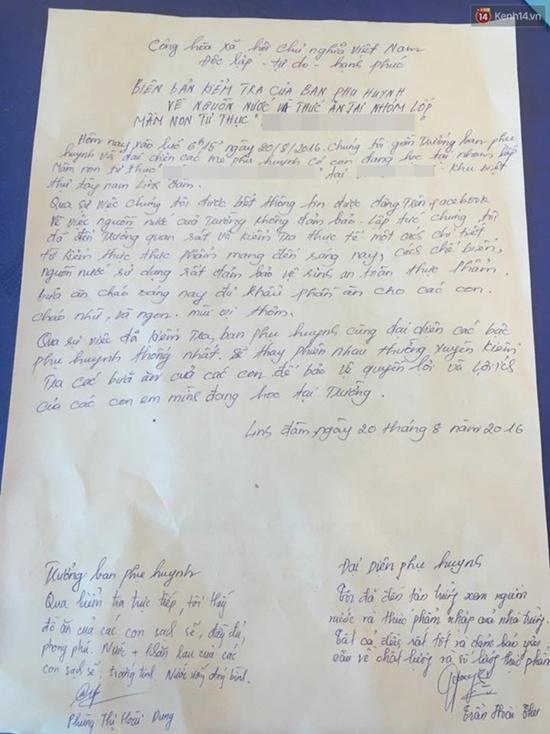 14 Kenh14.vn
Cộng hòa xã hội chủ nghĩa Việt Nam
Độc lập - tự do - hạnh phúc
BIÊN BẢN KIỂM TRA CỦA BAN PHỤ HUYNH
VỀ NGUỒN NƯỚC VÀ THỨC ĂN TẠI NHÓM LỚP
MẦM NON TƯ THỤC "
Hôm nay vào lúc 6h15' ngày 20/8/2016. Chúng tôi gồm Trưởng ban phụ
huynh và đại diện các mẹ phụ huynh có con đang học tại nhóm lớp
Mầm non tư thục " tại - Khu biệt
thự tây nam Linh đàm.
Qua sự việc chúng tôi được biết thông tin được đăng trên facebook
Về việc nguồn nước của Trường không đảm bảo - Lập tức chúng tôi
đã đến Trường quan sát và kiểm tra thực tế một cách chi tiết
từ kiểm thực thực phẩm mang đến sáng nay, cách chế biến,
nguồn nước sử dụng rất đảm bảo vệ sinh an toàn thực phẩm.
bữa ăn cháo sáng nay đủ khẩu phần ăn cho các con.
cháo nhừ, và ngon. mùi vị thơm.
Qua sự việc đã kiểm tra, ban phụ huynh cùng đại diện các bậc
phụ huynh thống nhất. sẽ thay phiên nhau thường xuyên kiểm
Tra các bữa ăn của các con để bảo vệ quyền lợi và lợi ích
của các con em mình đang học tại Trường.
Linh đàm, ngày 20 tháng 8 năm 2016
Trưởng ban phụ huynh
Qua kiểm tra trực tiếp, tôi thấy
đồ ăn của các con sạch sẽ, đầy đủ,
phong phú. Nước + khăn lau của các
con sạch sẽ, trắng tinh. Nước uống đóng bình.
Phùng Thị Hoài Dung
Đại Diện phụ huynh
Tôi đã đến tận trường xem nguồn
nước và thực phẩm nhập của nhà trường.
Tất cả đều rất tốt và đảm bảo yêu
cầu về chất lượng và số lượng thực phẩm
Trần Hoài Thu